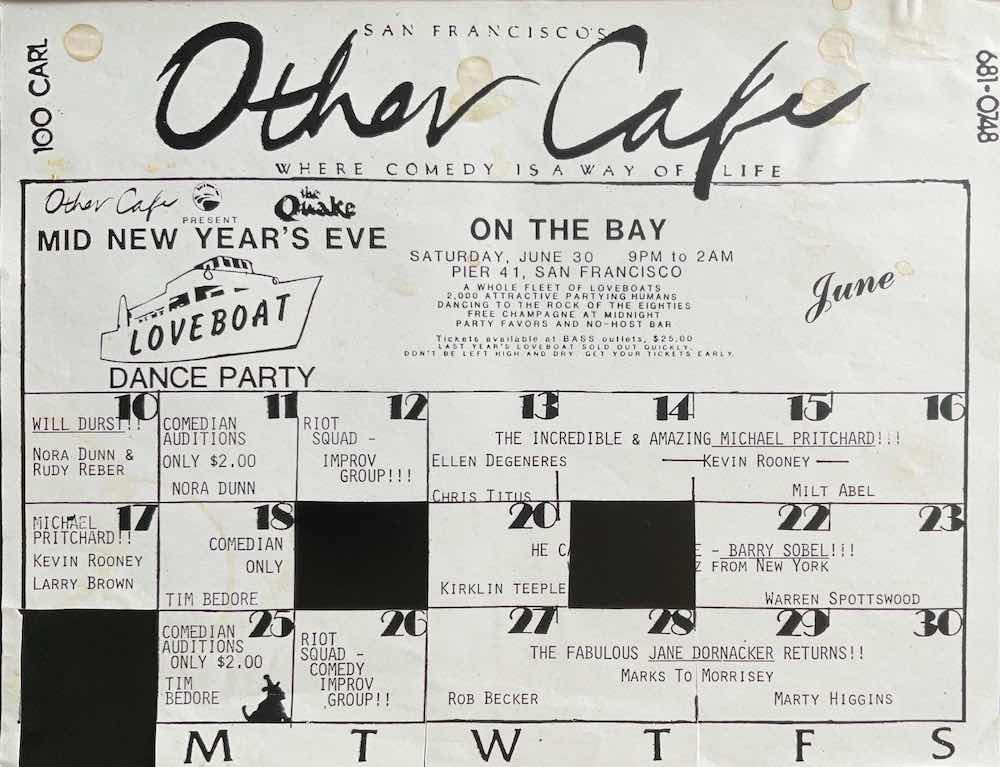 SAN FRANCISCO'S
100 CARL
Other Cafe
681-0748
WHERE COMEDY IS A WAY OF LIFE
Other Cafe
the
Quake
PRESENT
MID NEW YEAR'S EVE
LOVEBOAT
DANCE PARTY
ON THE BAY
SATURDAY, JUNE 30 9PM to 2AM
PIER 41, SAN FRANCISCO
A WHOLE FLEET OF LOVEBOATS
2,000 ATTRACTIVE PARTYING HUMANS
DANCING TO THE ROCK OF THE EIGHTIES
FREE CHAMPAGNE AT MIDNIGHT
PARTY FAVORS AND NO-HOST BAR
Tickets available at BASS outlets, $25.00
LAST YEAR'S LOVEBOAT SOLD OUT QUICKLY.
DON'T BE LEFT HIGH AND DRY. GET YOUR TICKETS EARLY.
June
10
WILL DURST!!
NORA DUNN &
RUDY REBER
11
COMEDIAN
AUDITIONS
ONLY $2.00
NORA DUNN
12
RIOT
SQUAD -
IMPROV
GROUP!!!
13 14 15 16
THE INCREDIBLE & AMAZING MICHAEL PRITCHARD!!!
ELLEN DEGENERES
KEVIN ROONEY
CHRIS TITUS
MILT ABEL
17
MICHAEL
PRITCHARD!!
KEVIN ROONEY
LARRY BROWN
18
COMEDIAN
ONLY
TIM BEDORE
20 22 23
HE
E - BARRY SOBEL!!!
Z FROM NEW YORK
KIRKLIN TEEPLE
WARREN SPOTTSWOOD
25
COMEDIAN
AUDITIONS
ONLY $2.00
TIM
BEDORE
26
RIOT
SQUAD -
COMEDY
IMPROV
GROUP!!
27 28 29 30
THE FABULOUS JANE DORNACKER RETURNS!!
MARKS TO MORRISEY
ROB BECKER
MARTY HIGGINS
M T W T F S